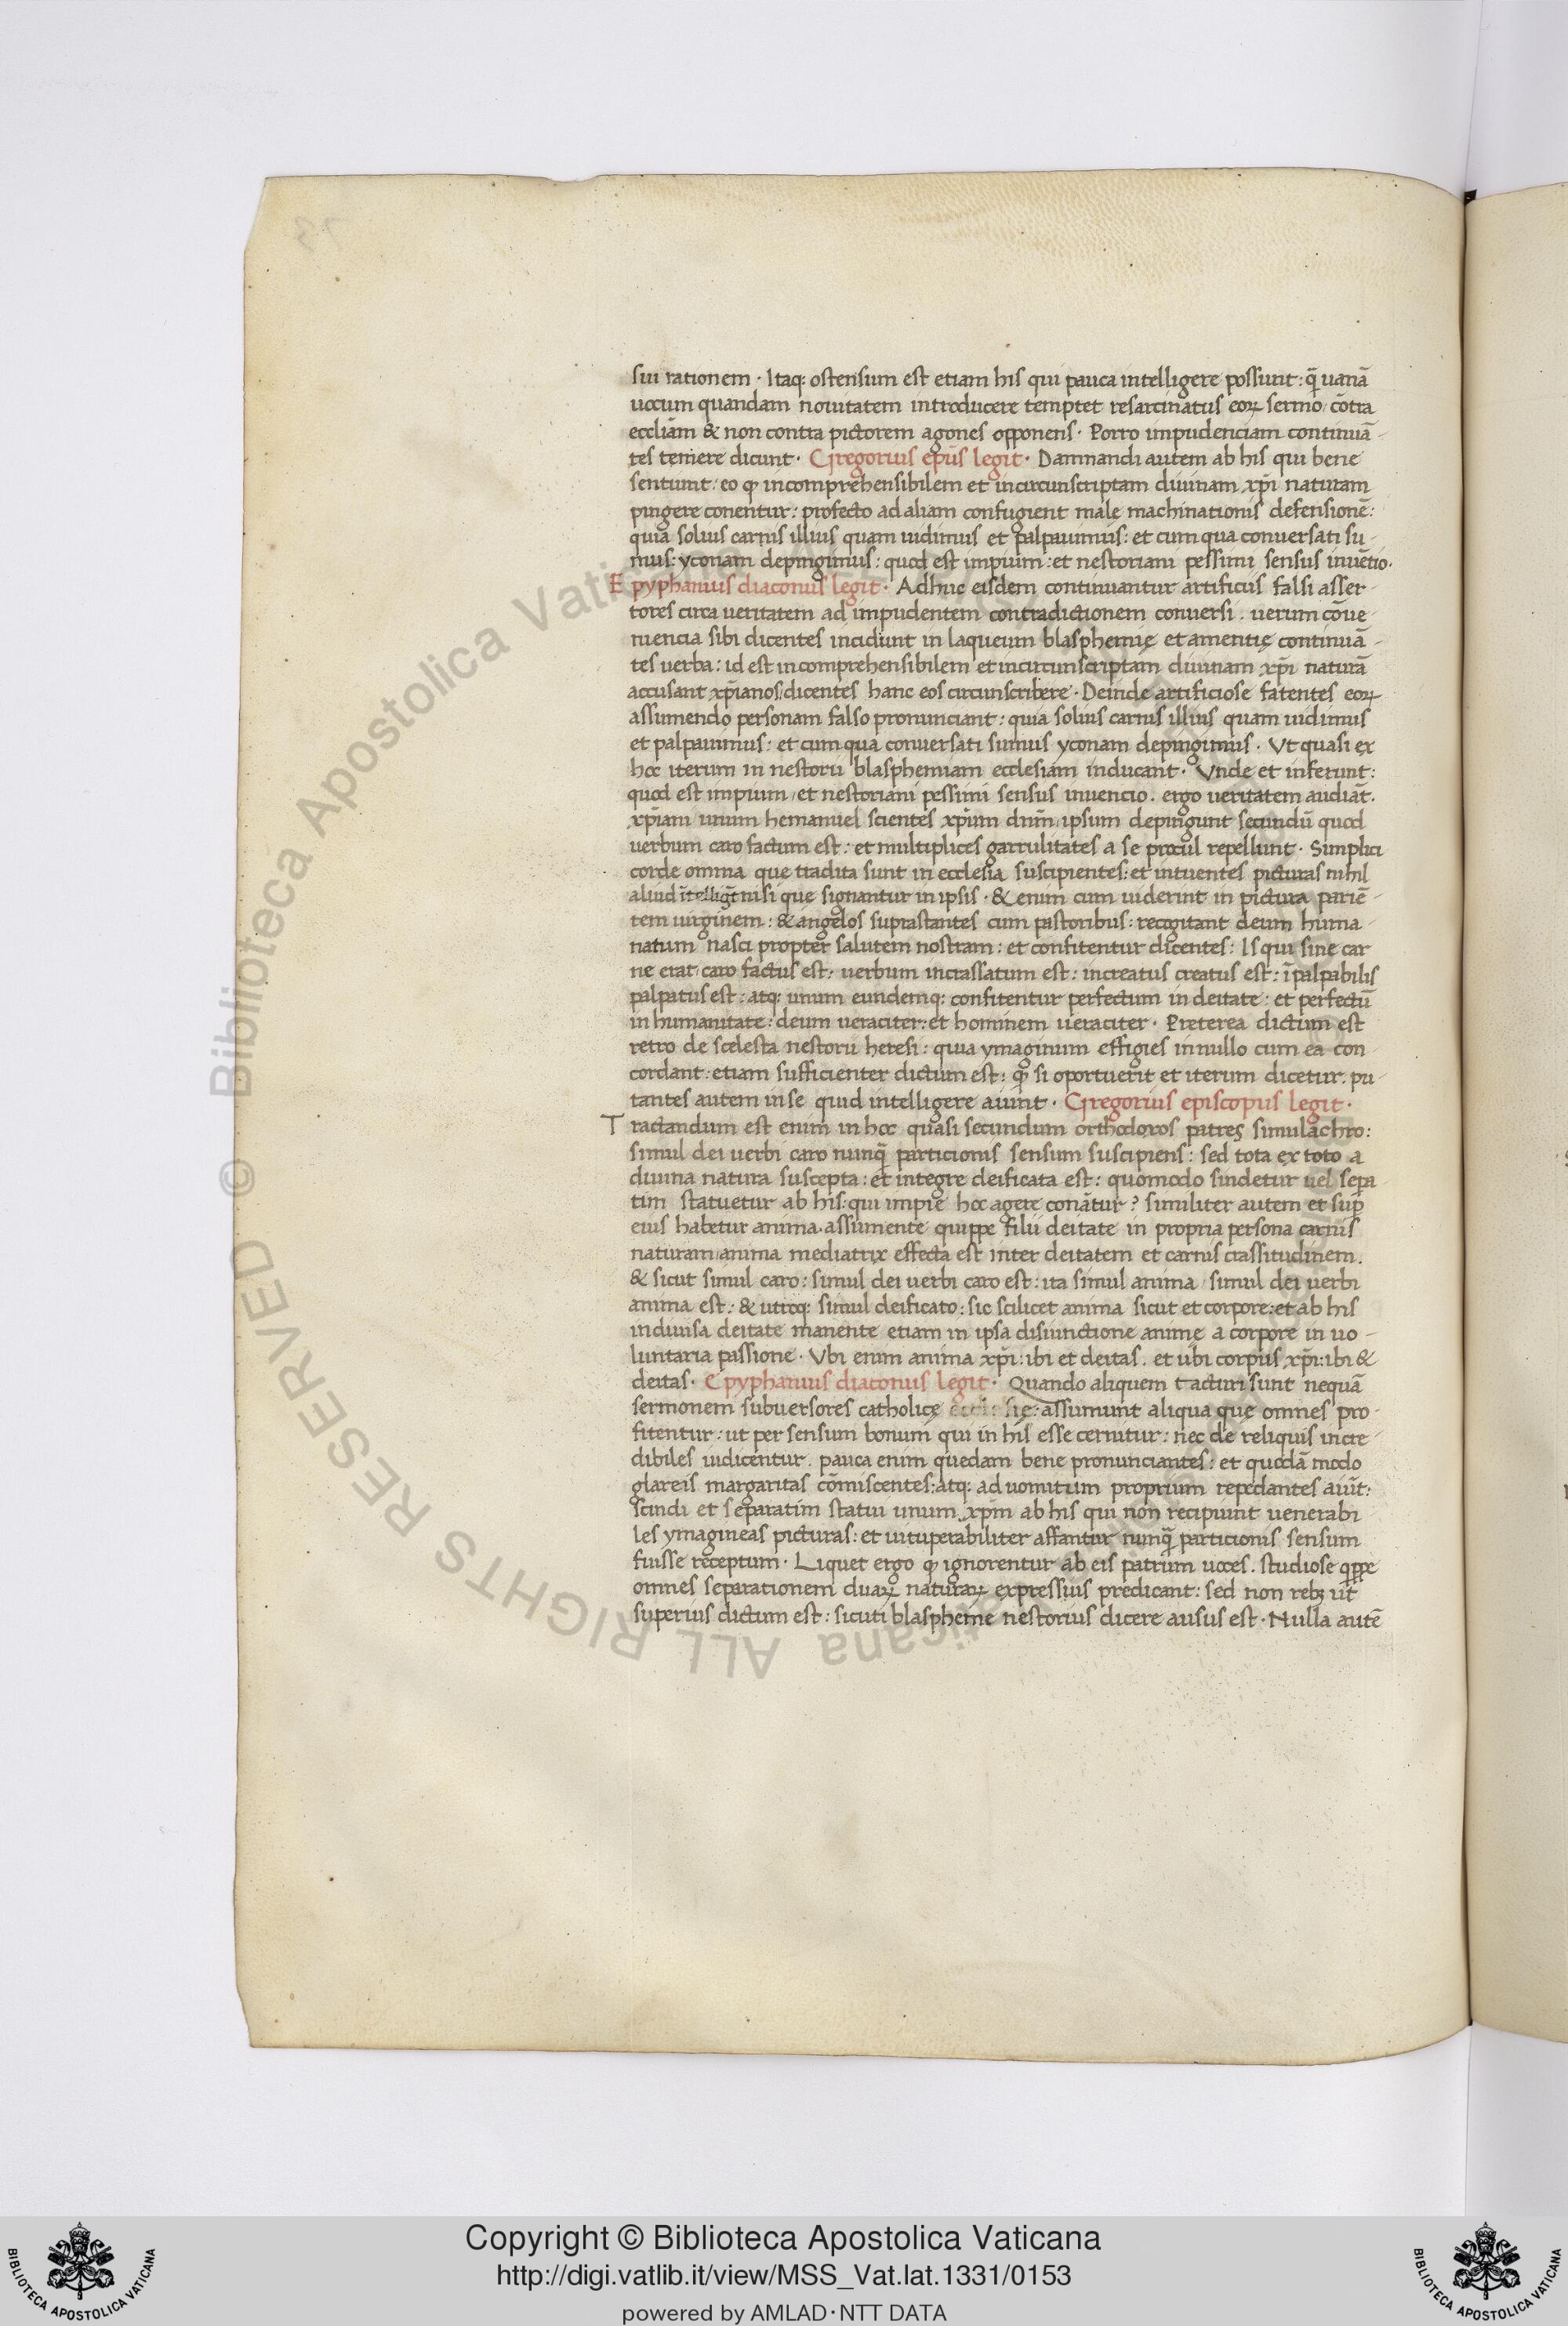 sui rationem · Itaq: ostensum est etiam his qui pauca intelligere possunt: q̄ uanā
uocum quandam nouitatem introducere temptet resarcinatus eoꝝ sermo, cōtra
eccliām & non contra pictorem agones opponens · Porro impudenciam continuā-
tes temere dicunt · Gregorius ep̄us legit · Damnandi autem ab his qui bene
sentiunt: eo ꝙ incomprehensibilem et incircunscriptam diuinam xp̄i naturam
pingere conentur: profecto ad aliam confugient male machinationis defensionē:
quia solius carnis illius quam uidimus et palpauimus: et cum qua conuersati su-
mus: yconam depingimus: quod est impium: et nestoriani pessimi sensus inuētio.
Epyphanius diaconus legit · Adhuc eisdem continuantur artificiis falsi asser-
tores circa ueritatem ad impudentem contradictionem conuersi. uerum cōue-
niencia sibi dicentes incidunt in laqueum blasphemię et amentię continuā-
tes uerba: id est incomprehensibilem et incircunscriptam diuinam xp̄i naturā
accusant xp̄ianos, dicentes hanc eos circunscribere · Deinde artificiose fatentes eoꝝ
assumendo personam falso pronunciant: quia solius carnis illius quam uidimus
et palpauimus: et cum qua conuersati sumus yconam depingimus · Vt quasi ex
hoc iterum in nestorii blasphemiam ecclesiam inducant · Vnde et inferunt:
quod est impium, et nestoriani pessimi sensus inuencio. ergo ueritatem audiāt.
xp̄iani unum hemanuel scientes xp̄um dnm̄, ipsum depingunt secundū quod
uerbum caro factum est: et multiplices garrulitates a se procul repellunt · Simplici
corde omnia que tradita sunt in ecclesia suscipientes: et intuentes picturas nihil
aliud ītelligūt nisi que signantur in ipsis · & enim cum uiderint in pictura pariē-
tem uirginem: & angelos suprastantes cum pastoribus: recogitant deum huma-
natum nasci propter salutem nostram: et confitentur dicentes: Is qui sine car
ne erat, caro factus est: uerbum incrassatum est: increatus creatus est: īpalpabilis
palpatus est: atq: unum eundemq: confitentur perfectum in deitate: et perfectū
in humanitate: deum ueraciter: et hominem ueraciter · Preterea dictum est
retro de scelesta nestorii heresi: quia ymaginum effigies in nullo cum ea con
cordant: etiam sufficienter dictum est: ꝙ si oportuerit et iterum dicetur. pu-
tantes autem in se quid intelligere aiunt · Gregorius episcopus legit ·
Tractandum est enim in hoc quasi secundum orthodoxos patres simulachro:
simul dei uerbi caro nunq̄ particionis sensum suscipiens: sed tota ex toto a
diuina natura suscepta: et integre deificata est: quomodo sindetur uel sepa-
tim statuetur ab his: qui impie hoc agere conātur? similiter autem et sup̄
eius habetur anima. assumente quippe filii deitate in propria persona carnis
naturam, anima mediatrix effecta est inter deitatem et carnis crassitudinem.
& sicut simul caro: simul dei uerbi caro est: ita simul anima, simul dei uerbi
anima est: & utroq: simul deificato: sic scilicet anima sicut et corpore: et ab his
indiuisa deitate manente etiam in ipsa disiunctione animę a corpore in uo-
luntaria passione · Vbi enim anima xp̄i: ibi et deitas. et ubi corpus xp̄i: ibi &
deitas · Epyphanius diaconus legit · Quando aliquem tacturi sunt nequā
sermonem subuersores catholicę ecclesię: assumunt aliqua quę omnes pro-
fitentur: ut per sensum bonum qui in his esse cernitur: nec de reliquis incre-
dibiles iudicentur. pauca enim quedam bene pronunciantes: et quodā modo
glareis margaritas cōmiscentes: atq: ad uomitum proprium repedantes aiūt:
scindi et separatim statui unum xp̄m ab his qui non recipiunt uenerabi
les ymagineas picturas: et uituperabiliter affantur nunq̄ particionis sensum
fuisse receptum · Liquet ergo ꝙ ignorentur ab eis patrum uoces. studiose qppe
omnes separationem duaꝝ naturaꝝ expressius predicant: sed non rebꝫ ut
superius dictum est: sicuti blaspheme nestorius dicere ausus est · Nulla autē
Copyright © Biblioteca Apostolica Vaticana
http://digi.vatlib.it/view/MSS_Vat.lat.1331/0153
powered by AMLAD·NTT DATA
BIBLIOTECA APOSTOLICA VATICANA
BIBLIOTECA APOSTOLICA VATICANA
© Biblioteca Apostolica Vaticana ALL RIGHTS RESERVED